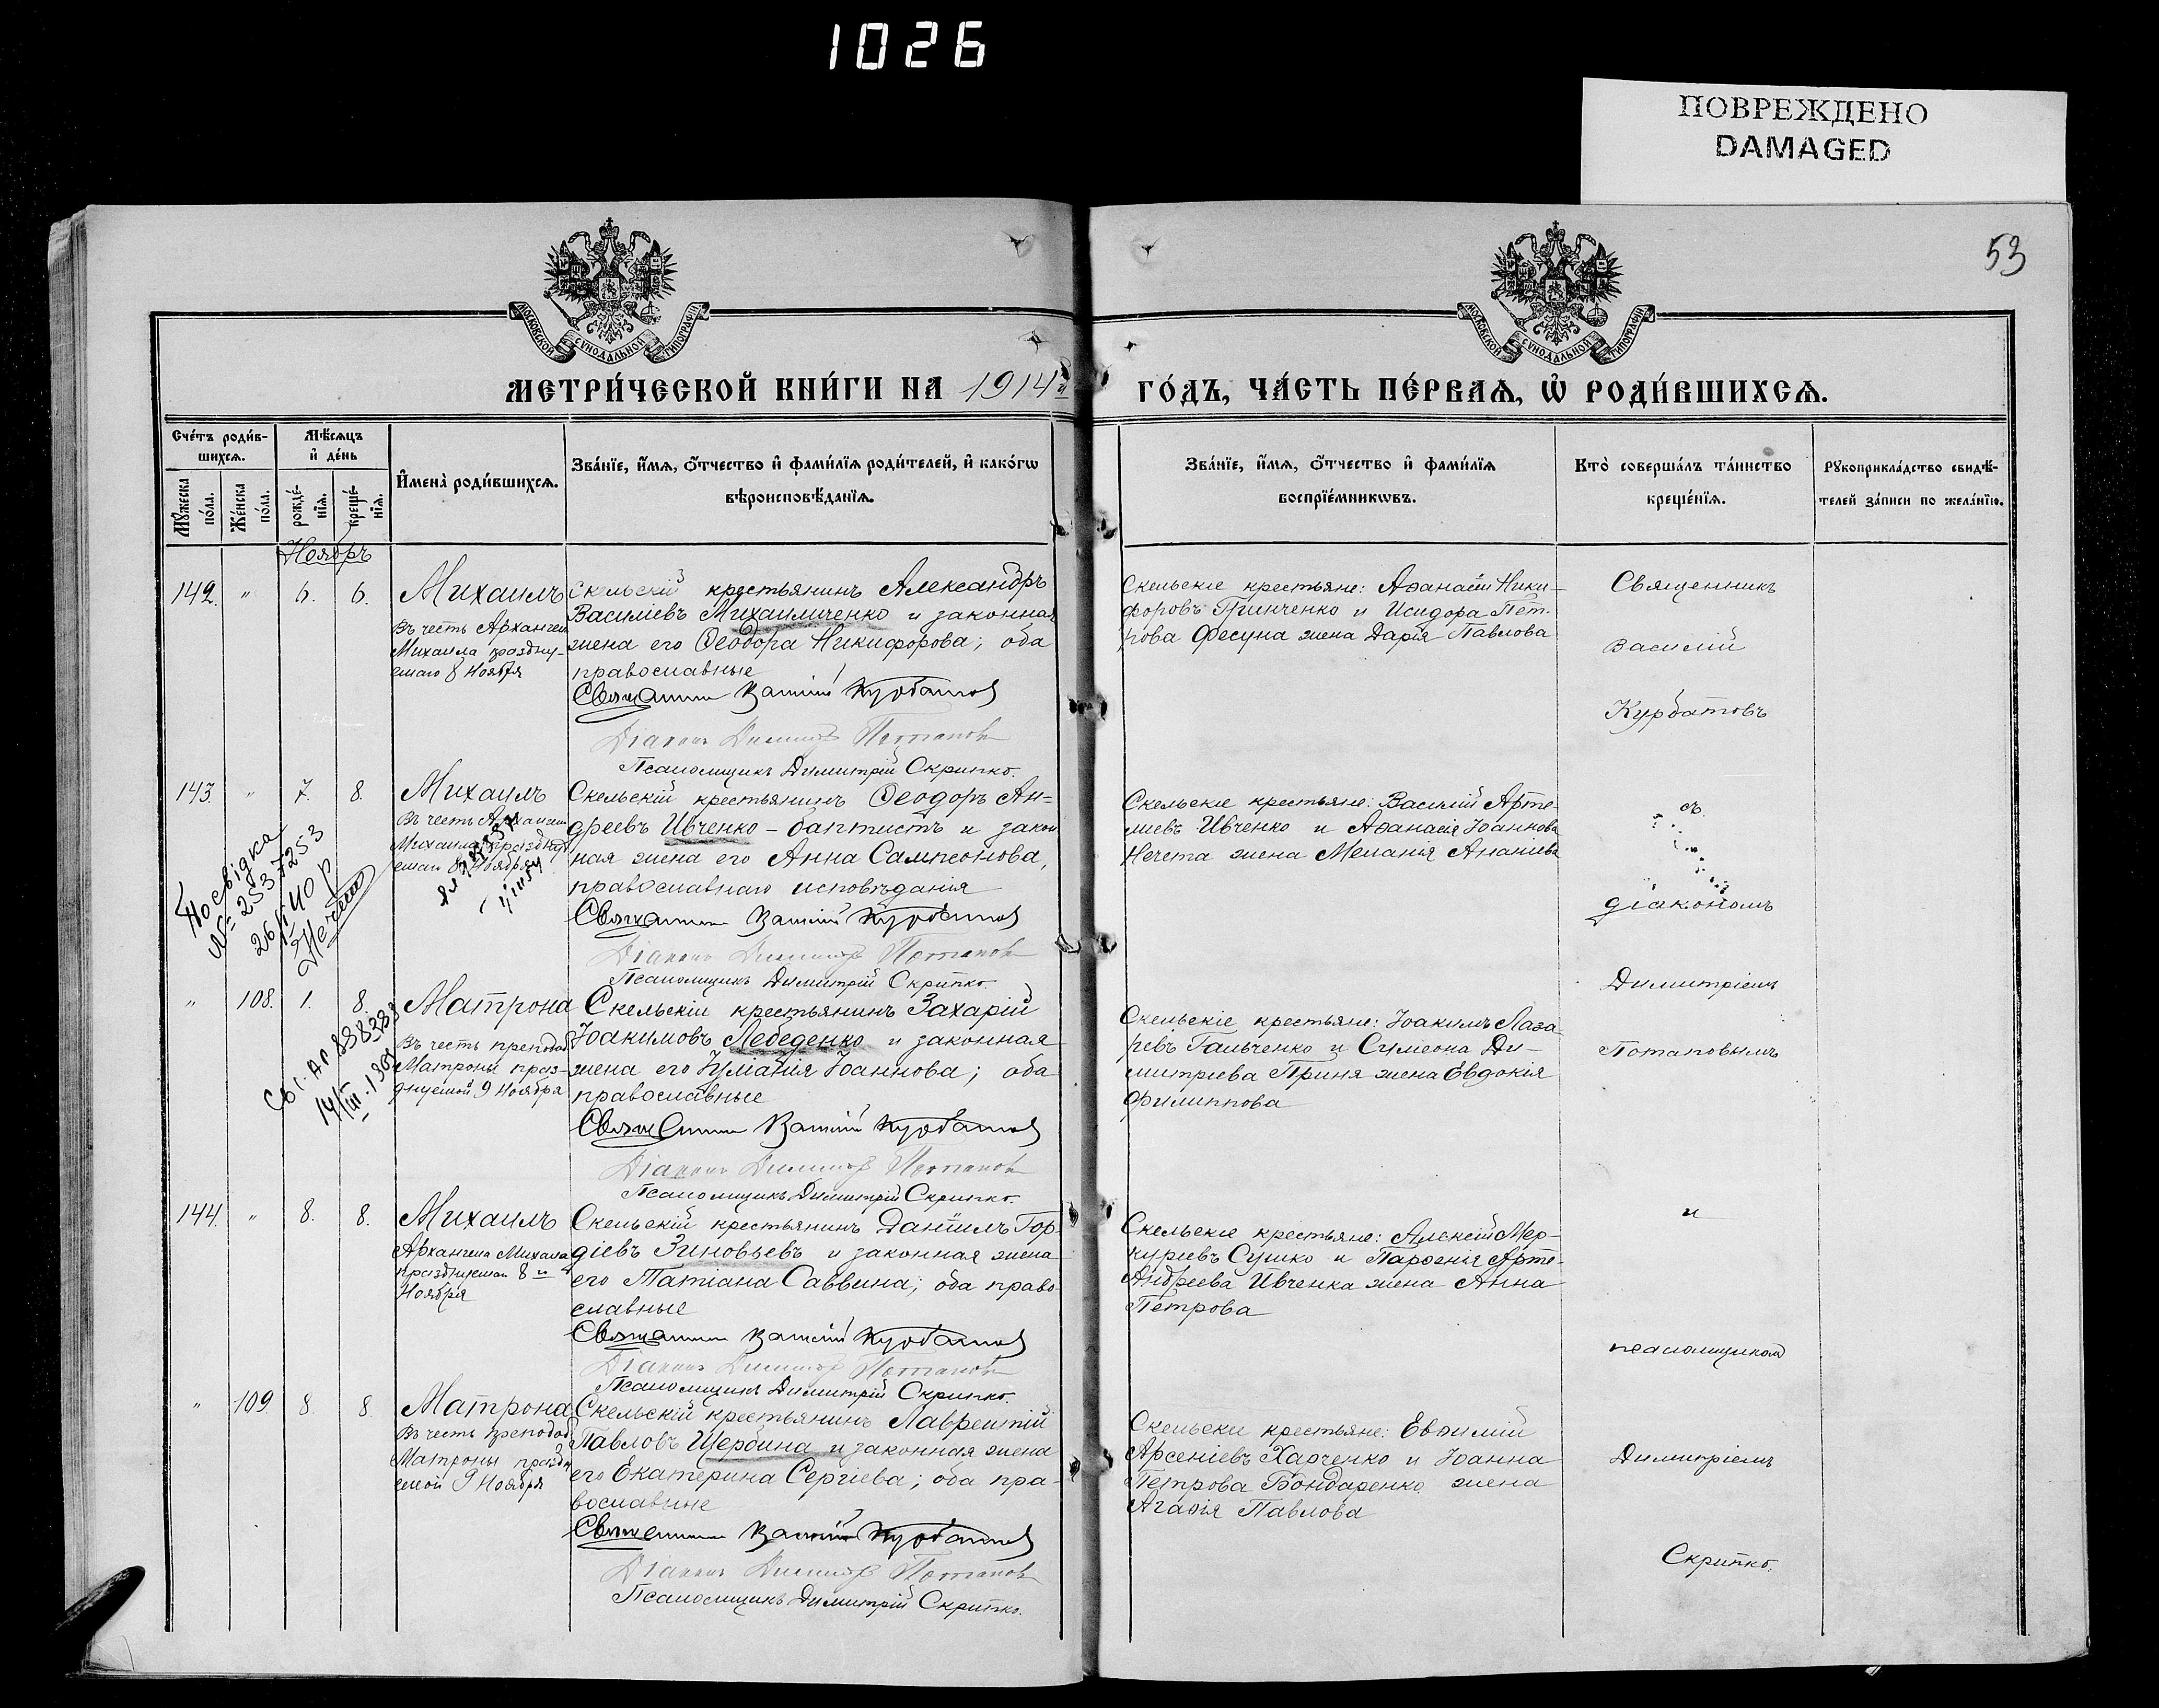 1026
ПОВРЕЖДЕНО
DAMAGED
53
МОСКОВСКОЙ СѴНОДАЛЬНОЙ ТИПОГРАФІИ
МОСКОВСКОЙ СѴНОДАЛЬНОЙ ТИПОГРАФІИ
МЕТРИ́ЧЕСКОЙ КНИ́ГИ НА 1914й ГО́ДЪ, ЧА́СТЬ ПЕ́РВАѦ, Ѡ҆ РОДИ́ВШИХСѦ.
Сче́тъ роди́в-
шихсѧ.
Мѣ́сѧцъ
и҆ де́нь
Мꙋ́жеска
по́ла.
Же́нска
по́ла.
рожде́-
нїѧ.
креще́-
нїѧ.
И҆мена̀ роди́вшихсѧ.
Зва́нїе, и҆́мѧ, ѻ҆́тчество и҆ фами́лїѧ роди́телей, и҆ како́гѡ
вѣроисповѣ́данїѧ.
Зва́нїе, и҆́мѧ, ѻ҆́тчество и҆ фами́лїѧ
воспрїе́мникѡвъ.
Кто̀ соверша́лъ та́инство
креще́нїѧ.
Рꙋкоприкла́дство свидѣ́-
телей за́писи по жела́нїю.
Ноябрь
142. " 6. 6. Михаилъ
Въ честь Архангела
Михаила праздну-
емаго 8 Ноября
Скельскій крестьянинъ Александръ
Василіевъ Михаильченко и законная
жена его Ѳеодора Никифорова; оба
православные
Священникъ Василій Курбатовъ
Діаконъ Димитрій Потаповъ
Псаломщикъ Димитрій Скрипко.
Скельскіе крестьяне: Аѳанасій Ники-
форовъ Гринченко и Исидора Пет-
рова Фесуна жена Дарія Павлова
Священникъ
Василій
Курбатовъ
143. " 7. 8. Михаилъ
Въ честь Архангела
Михаила праздну-
емаго 8 Ноября
Скельскій крестьянинъ Ѳеодоръ Ан=
дреевъ Ивченко - баптистъ и закон
ная жена его Анна Сампсонова,
православнаго исповѣданія
Священникъ Василій Курбатовъ
Діаконъ Димитрій Потаповъ
Псаломщикъ Димитрій Скрипко.
Посвідка
№ 2537253
26/ 40 р
Скельскіе крестьяне: Василій Арте-
міевъ Ивченко и Аѳанасія Іоаннова
Нечета жена Меланія Ананіева
съ
діакономъ
Димитріемъ
Потаповымъ
" 108. 1. 8. Матрона
Въ честь преподоб
Матроны праз-
днуемой 9 Ноября
Скельскій крестьянинъ Захарій
Іоакимовъ Лебеденко и законная
жена его Іуліанія Іоаннова; оба
православные
Священникъ Василій Курбатовъ
Діаконъ Димитрій Потаповъ
Псаломщикъ Димитрій Скрипко.
Скельскіе крестьяне: Іоакимъ Лаза-
ревъ Гальченко и Симеона Ди-
митріева Приня жена Евдокія
Филиппова
144. " 8. 8. Михаилъ
Архангела Михаила
празднуемаго 8 и
Ноября
Скельскій крестьянинъ Даніилъ Гор-
діевъ Зиновьевъ и законная жена
его Татіана Саввина; оба право-
славные
Священникъ Василій Курбатовъ
Діаконъ Димитрій Потаповъ
Псаломщикъ Димитрій Скрипко.
Скельскіе крестьяне: Алексій Мер-
куріевъ Сушко и Парѳенія Арте-
Андреева Ивченка жена Анна
Петрова
и
псаломщикомъ
" 109. 8. 8. Матрона
Въ честь преподоб
Матроны праздну
емой 9 Ноября
Скельскій крестьянинъ Лаврентій
Павловъ Щербина и законная жена
его Екатерина Сергіева; оба пра-
вославные
Священникъ Василій Курбатовъ
Діаконъ Димитрій Потаповъ
Псаломщикъ Димитрій Скрипко.
Скельскіе крестьяне: Евѳимій
Арсеніевъ Харченко и Іоанна
Петрова Бондаренко жена
Агаѳія Павлова
Димитріемъ
Скрипко.